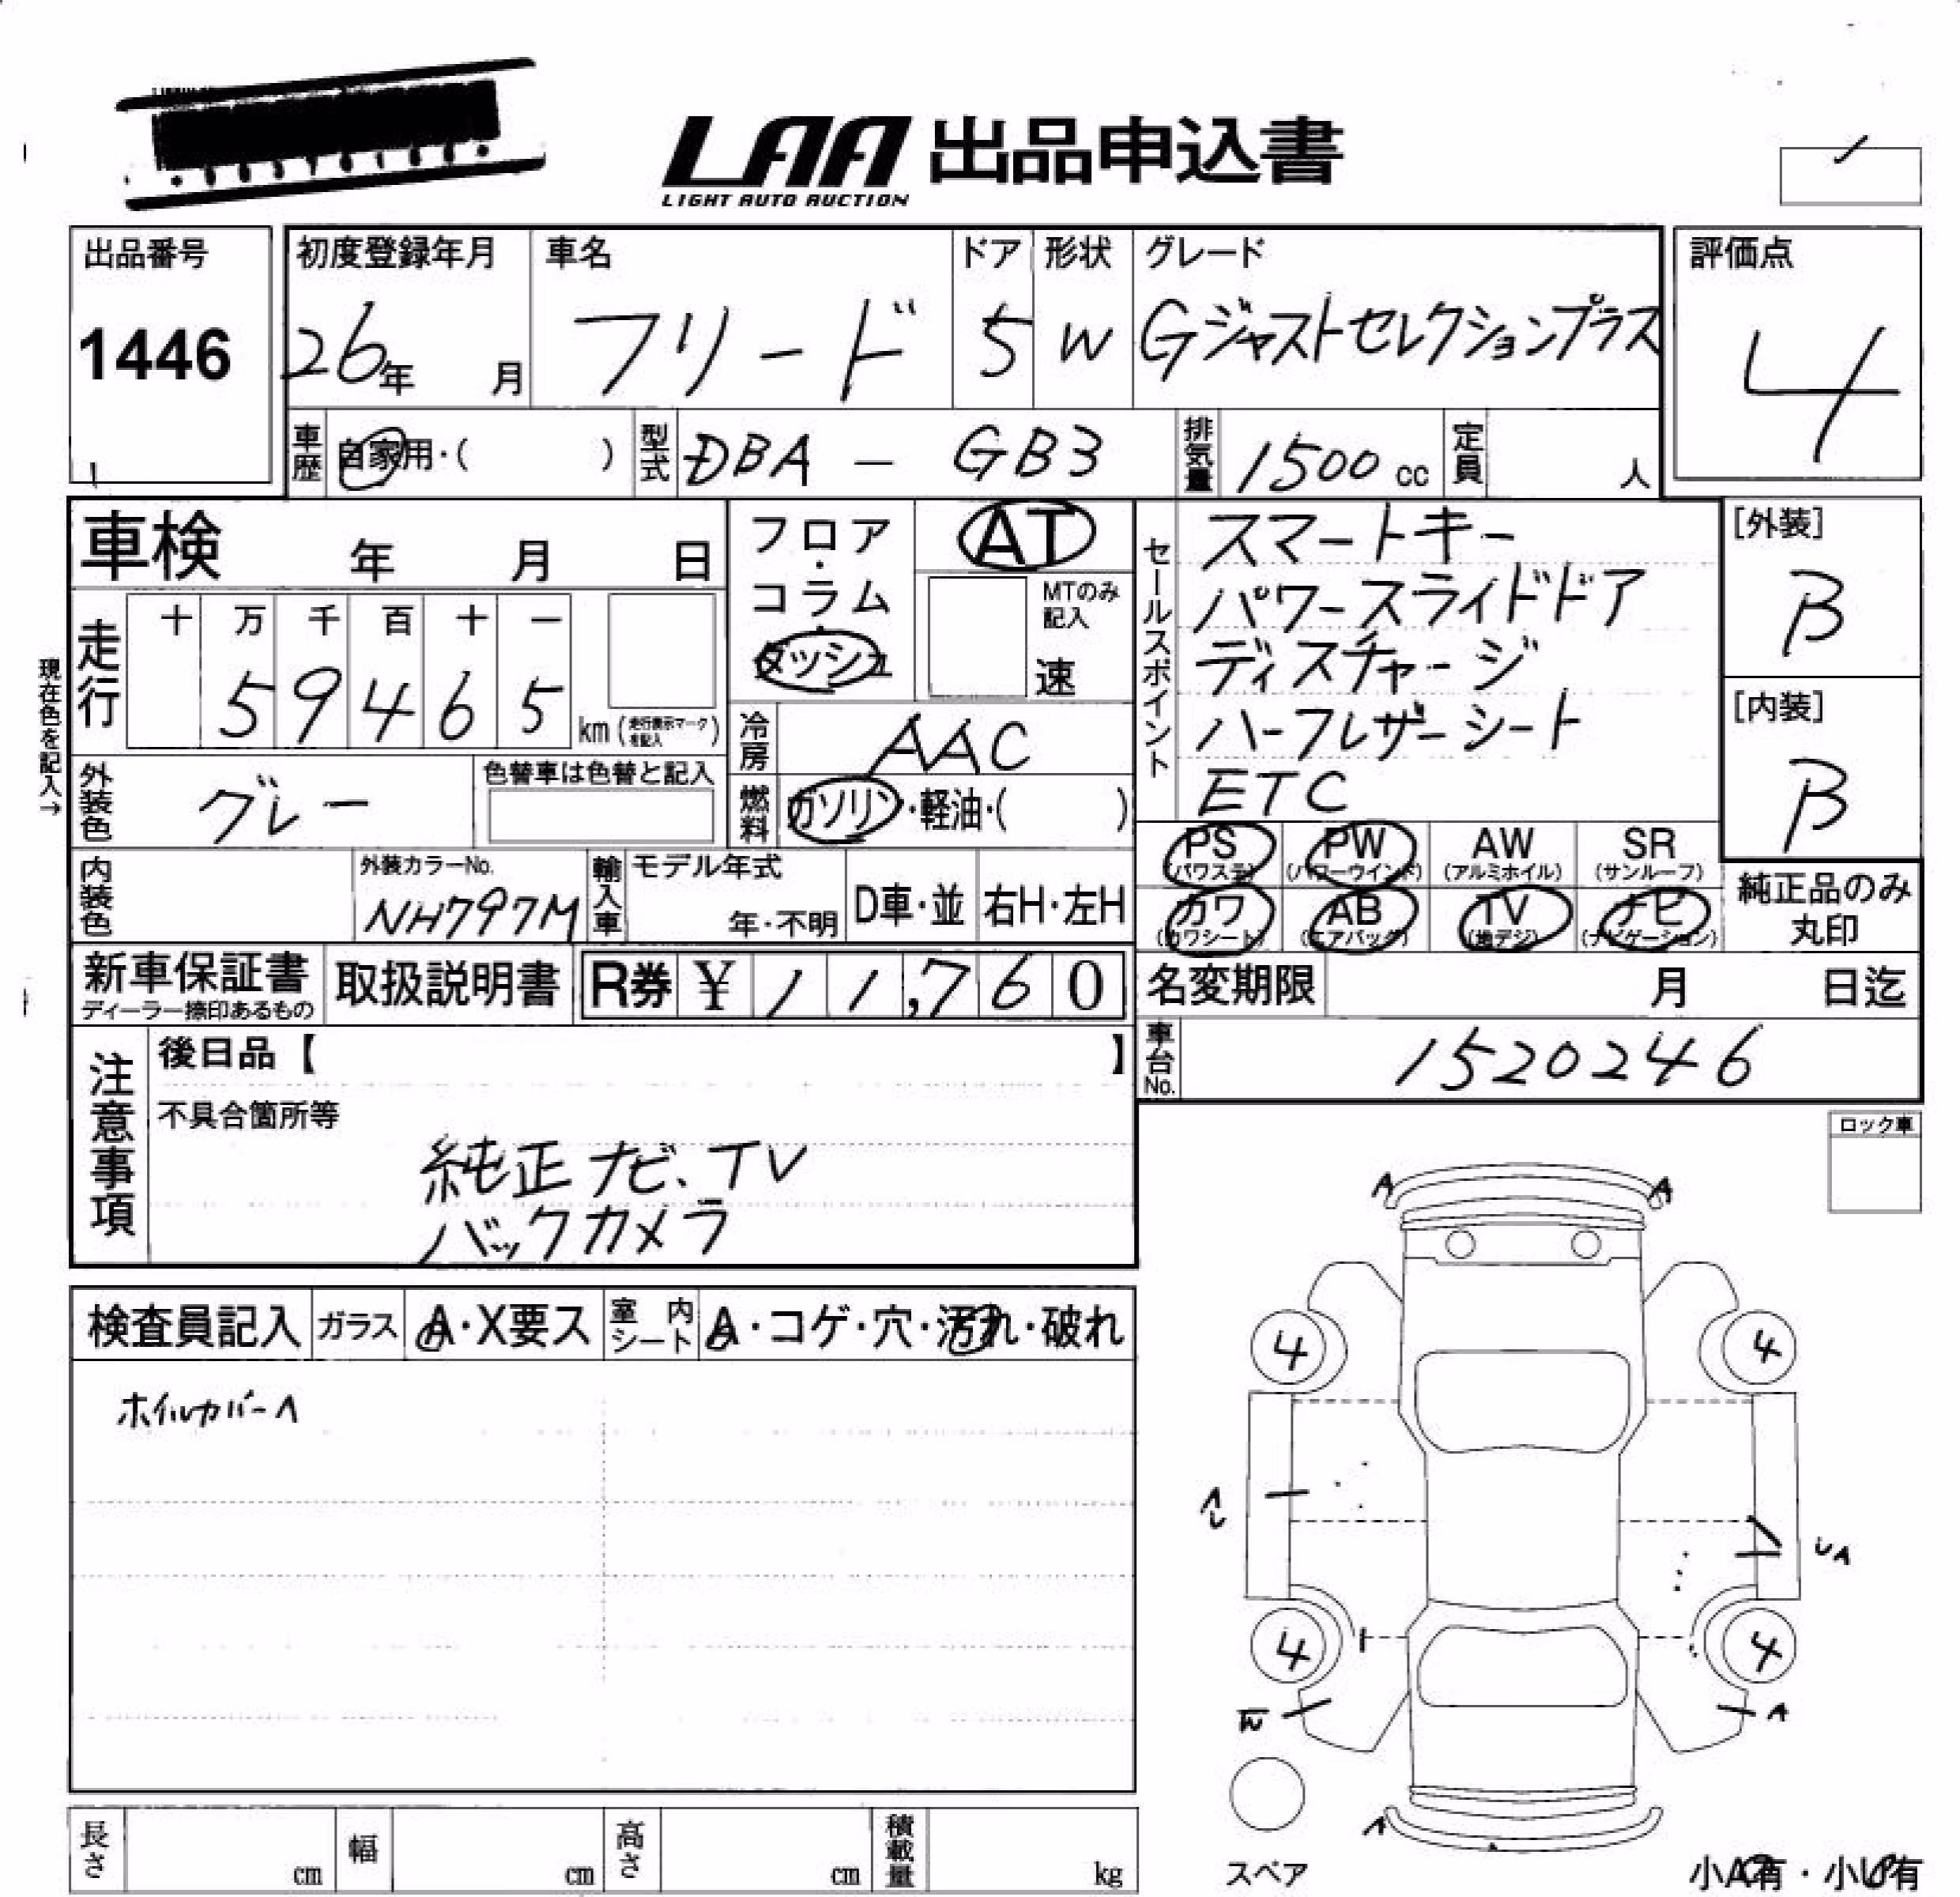 LAA 出品申込書
LIGHT AUTO AUCTION
出品番号
1446
初度登録年月
26年 月
車名
フリード
ドア
5
形状
W
グレード
Gジャストセレクションプラス
評価点
4
車歴 自家用・( )
型式 DBA - GB3
排気量 1500 cc
定員 人
車検 年 月 日
現在色を記入→
走行 十 万 千 百 十 一
59465 km (走行表示マークを記入)
フロア・コラム・ダッシュ
AT
MTのみ記入
速
冷房 AAC
燃料 ガソリン・軽油・( )
外装色 グレー
色替車は色替と記入
内装色
外装カラーNo.
NH797M
輸入車
モデル年式
年・不明
D車・並 右H・左H
セールスポイント
スマートキー
パワースライドドア
ディスチャージ
ハーフレザーシート
ETC
[外装]
B
[内装]
B
PS (パワステ) PW (パワーウインド) AW (アルミホイル) SR (サンルーフ)
カワ (カワシート) AB (エアバッグ) TV (地デジ) ナビ (ナビゲーション)
純正品のみ
丸印
新車保証書
ディーラー捺印あるもの
取扱説明書
R券 ¥ 11,760
名変期限 月 日迄
車台No. 1520246
注意事項
後日品【 】
不具合箇所等
純正ナビ、TV
バックカメラ
ロック車
検査員記入 ガラス A・X要ス 室内シート A・コゲ・穴・汚れ・破れ
ホイルカバーA
A A
4 4
UA
4 4
W A
A
スペア
小A有・小U有
長さ cm 幅 cm 高さ cm 積載量 kg